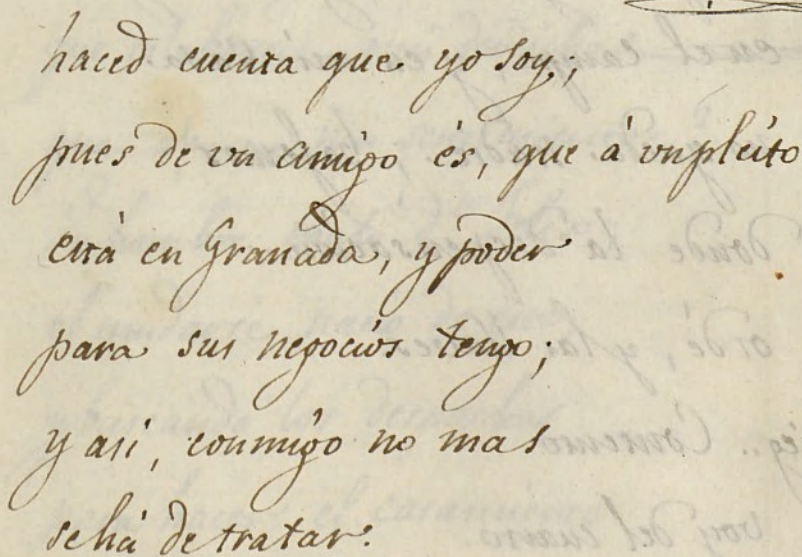 haced cuenta que yo soy;
pues de vn amigo és, que à vn pleito
está en Granada, y poder
para sus negocios tengo;
y asi, conmigo no mas
se há de tratar.